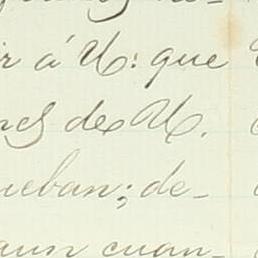 r á U: que
de U.
ueban; de-
aun cuan-